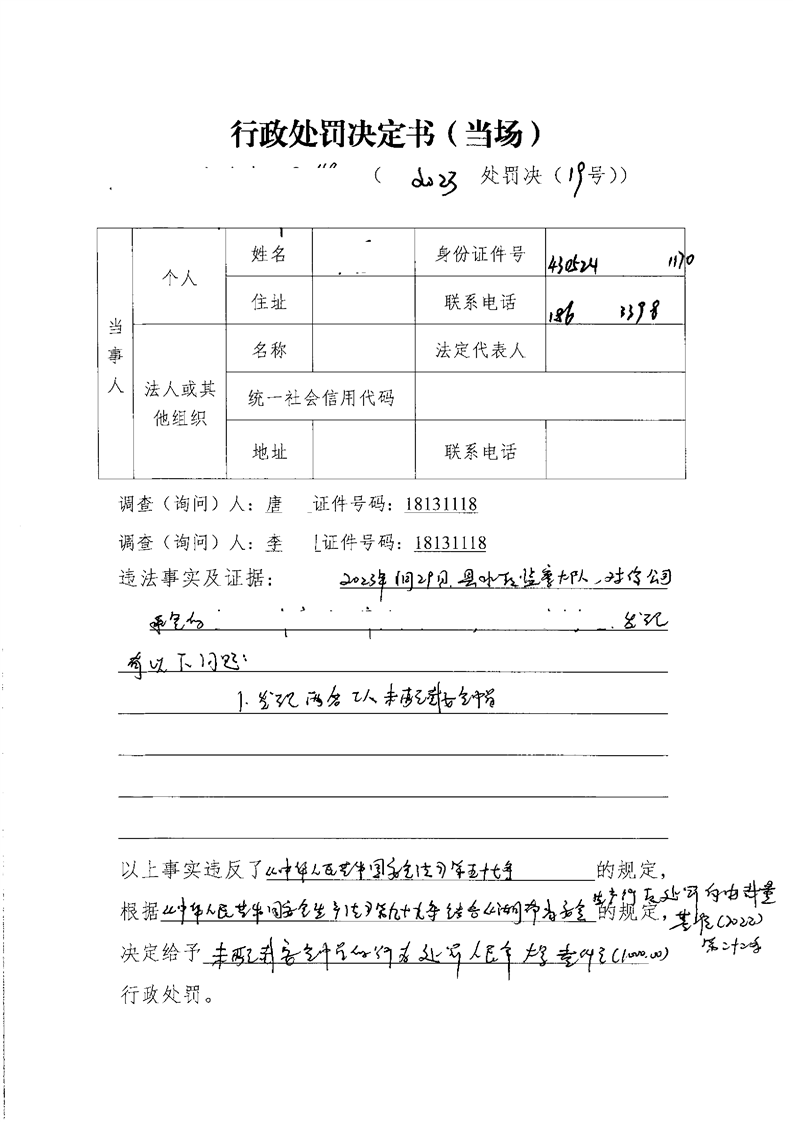 行政处罚决定书（当场）
（ 2023 处罚决（19号））
当事人
个人
姓名
身份证件号
430524 1170
住址
联系电话
186 3398
法人或其他组织
名称
法定代表人
统一社会信用代码
地址
联系电话
调查（询问）人：唐 证件号码：18131118
调查（询问）人：李 证件号码：18131118
违法事实及证据： 2023年 月29日，县 监察大队，对你公司
发现
有以下问题：
1. 发现两名工人未配戴安全帽
以上事实违反了《中华人民共和国安全法》第五十七条 的规定，
根据《中华人民共和国安全生产法》第九十九条结合《湖南省安全 的规定，
生产行政处罚自由裁量
基准(2022)
第二十二条
决定给予 未配戴安全帽的行为处罚人民币大写壹仟元(1000.00)
行政处罚。